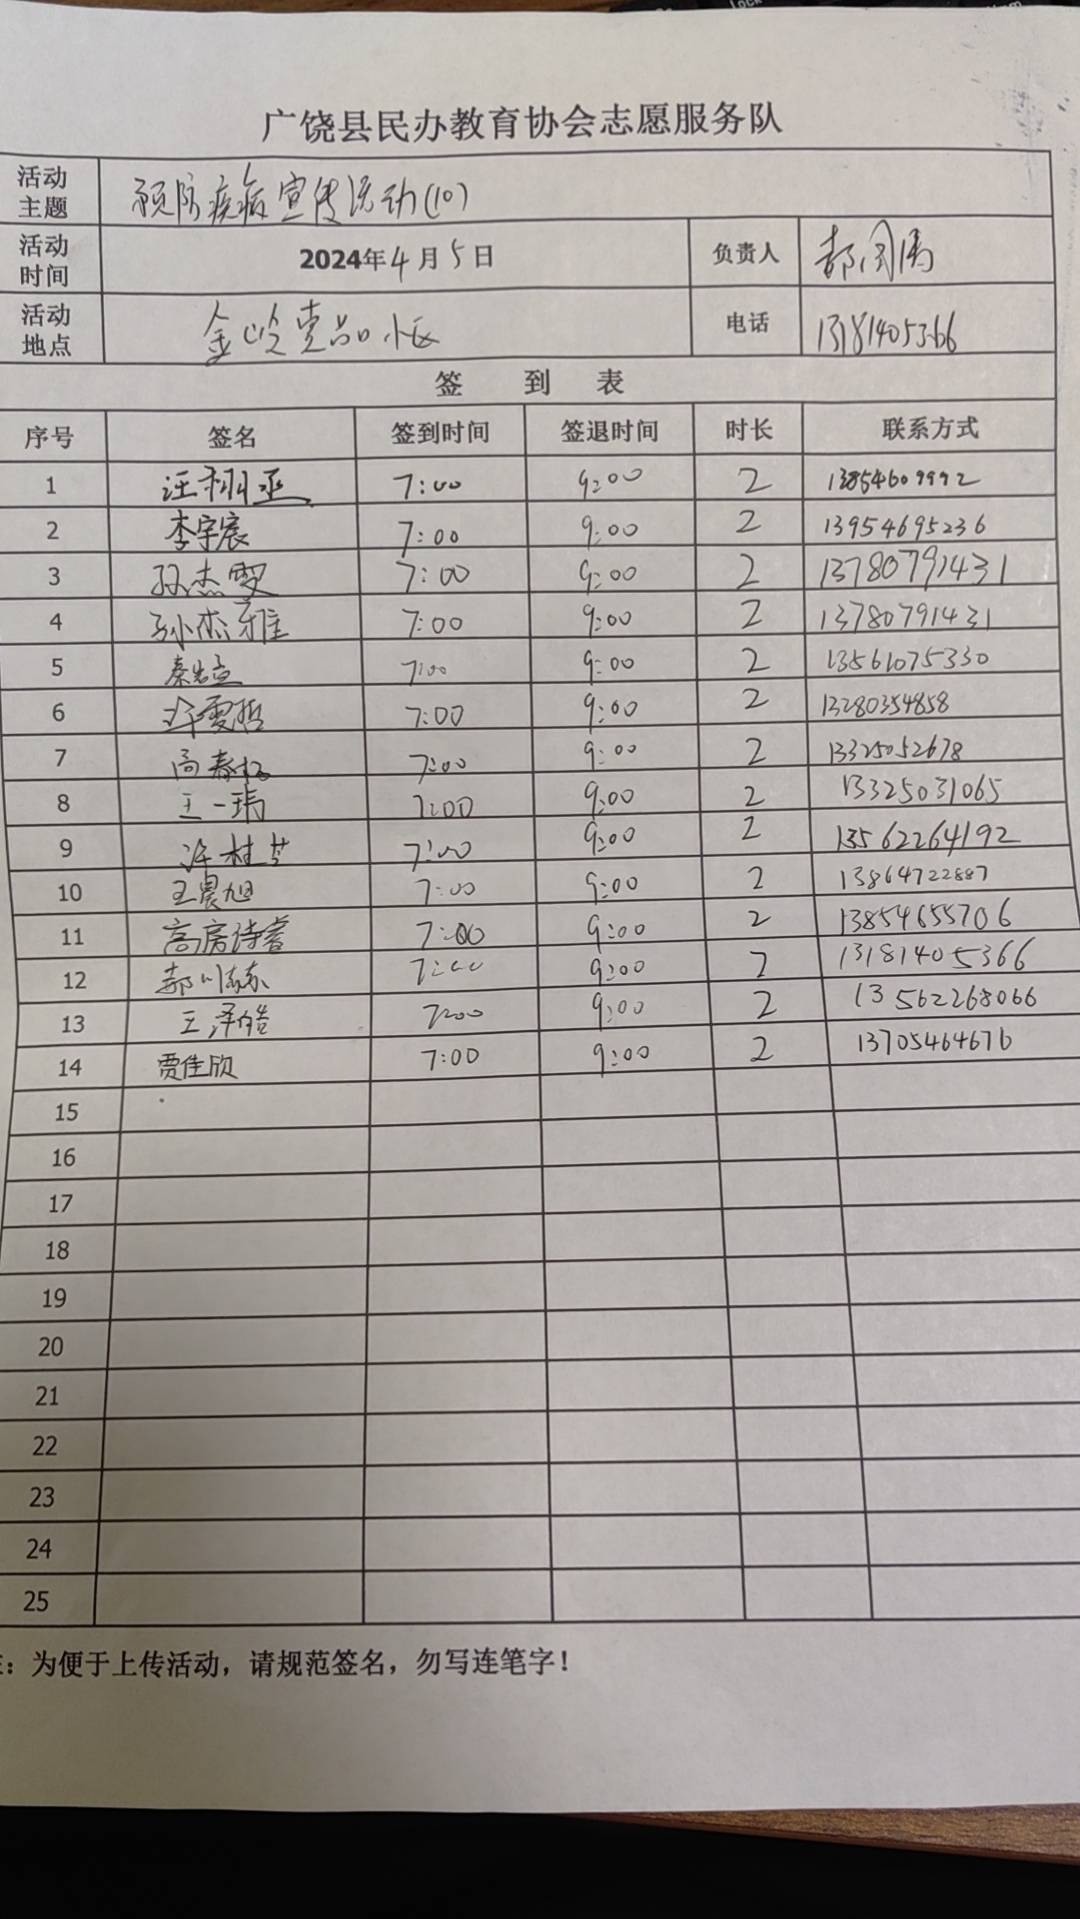 广饶县民办教育协会志愿服务队
活动主题 预防疾病宣传活动(10)
活动时间 2024年4月5日 负责人
活动地点 金岭 小区 电话 13181405366
签 到 表
序号 签名 签到时间 签退时间 时长 联系方式
1 汪栩丞 7:00 9:00 2 13854609992
2 李宇宸 7:00 9:00 2 13954695236
3 孙杰雯 7:00 9:00 2 13780791431
4 孙杰雅 7:00 9:00 2 13780791431
5 7:00 9:00 2 13561075330
6 许雯哲 7:00 9:00 2 13280354858
7 7:00 9:00 2 13325052678
8 王一瑀 7:00 9:00 2 13325031065
9 许桂芝 7:00 9:00 2 13562264192
10 王晨旭 7:00 9:00 2 13864722887
11 高房诗睿 7:00 9:00 2 13854655706
12 7:00 9:00 2 13181405366
13 王泽皓 7:00 9:00 2 13562268066
14 贾佳欣 7:00 9:00 2 13705464676
15
16
17
18
19
20
21
22
23
24
25
：为便于上传活动，请规范签名，勿写连笔字！